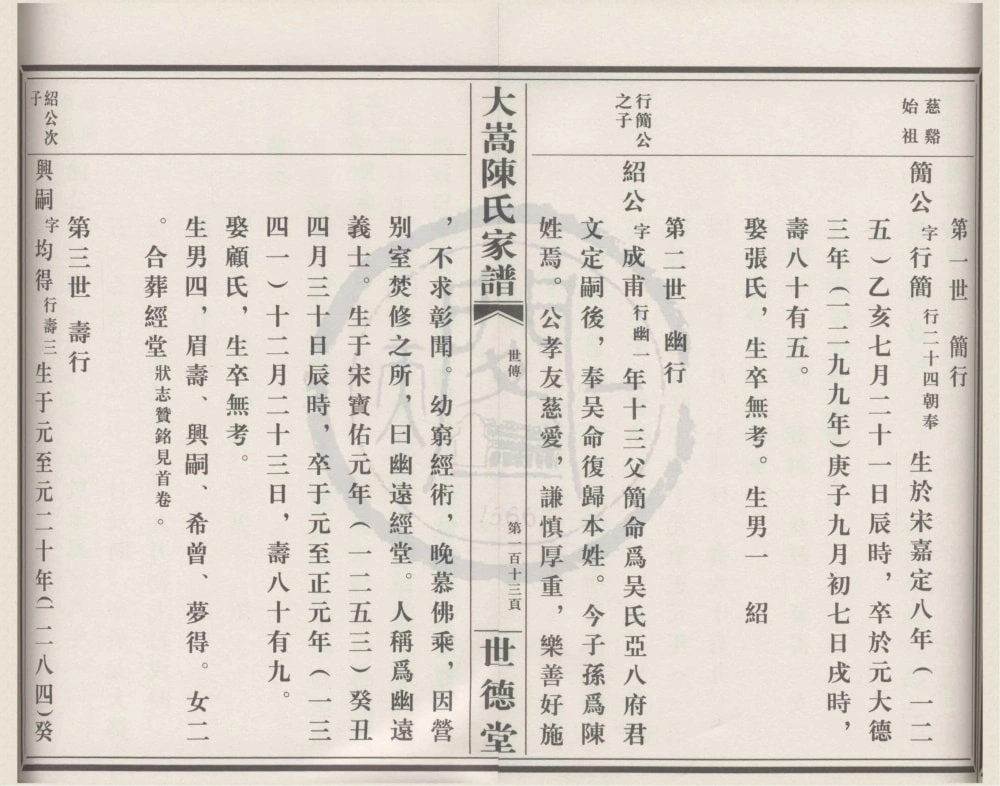 第一世　簡行
慈谿
始祖
簡公字行簡行二十四朝奉　生於宋嘉定八年（一二
五）乙亥七月二十一日辰時，卒於元大德
三年（一二九九年）庚子九月初七日戌時，
壽八十有五。
娶張氏，生卒無考。生男一　紹
第二世　幽行
行簡公
之子
紹公字成甫行幽一年十三父簡命爲吴氏亞八府君
文定嗣後，奉吴命復歸本姓。今子孫爲陳
姓焉。公孝友慈愛，謙慎厚重，樂善好施
大嵩陳氏家譜
世傳
第一百十三頁
世德堂
，不求彰聞。幼窮經術，晚慕佛乘，因營
别室焚修之所，曰幽遠經堂。人稱爲幽遠
義士。生于宋寶佑元年（一二五三）癸丑
四月三十日辰時，卒于元至正元年（一三
四一）十二月二十三日，壽八十有九。
娶顧氏，生卒無考。
生男四，眉壽、興嗣、希曾、夢得。女二
。合葬經堂狀志贊銘見首卷。
第三世　壽行
紹公次
子
興嗣字均得行壽三生于元至元二十年（一二八四）癸
1566